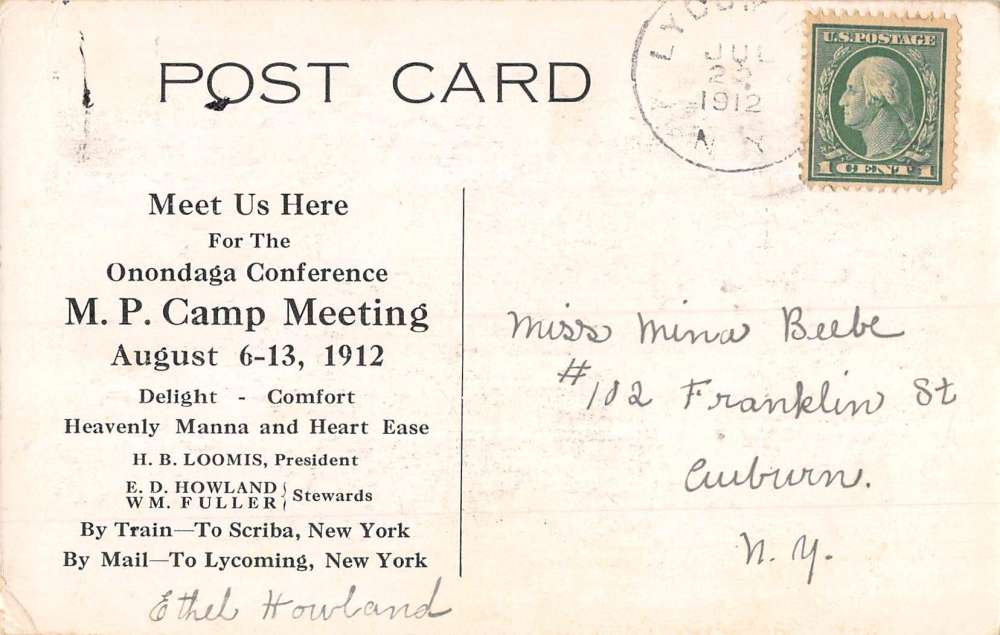 POST CARD
LYCOM
JUL
1912
N Y
U.S. POSTAGE
1 CENT 1
Meet Us Here
For The
Onondaga Conference
M. P. Camp Meeting
August 6-13, 1912
Delight - Comfort
Heavenly Manna and Heart Ease
H. B. LOOMIS, President
E. D. HOWLAND
WM. FULLER } Stewards
By Train—To Scriba, New York
By Mail—To Lycoming, New York
Ethel Howland
Miss Mina Beebe
#102 Franklin St
Auburn.
N. Y.